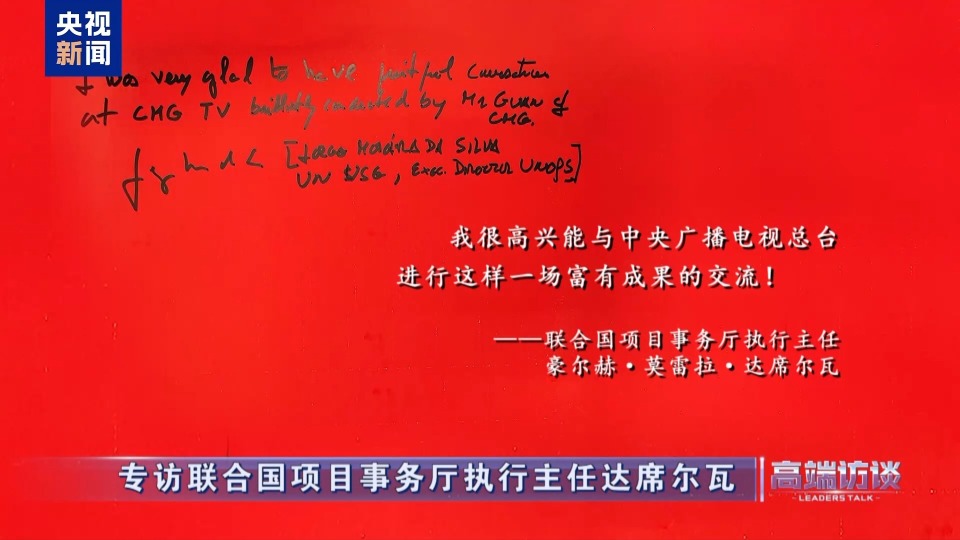 央视
新闻
I was very glad to have fruitful
at CMG TV brilliantly conducted by Mr Guan of
CMG.
[Jorge Moreira Da Silva
UN USG, Exec. Director UNOPS]
我很高兴能与中央广播电视总台
进行这样一场富有成果的交流！
——联合国项目事务厅执行主任
豪尔赫·莫雷拉·达席尔瓦
专访联合国项目事务厅执行主任达席尔瓦
高端访谈
LEADERS TALK